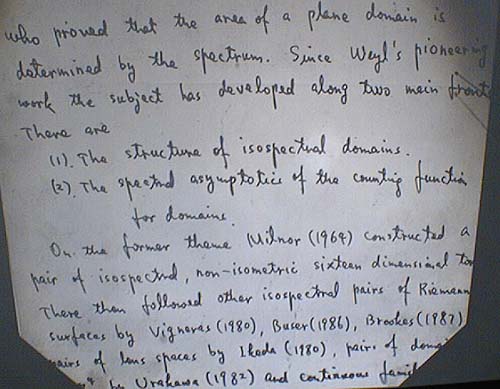 who proved that the area of a plane domain is
determined by the spectrum. Since Weyl's pioneering
work the subject has developed along two main front
There are
(1). The structure of isospectral domains.
(2). The spectral asymptotics of the counting function
for domains.
On the former theme Milnor (1964) constructed a
pair of isospectral, non-isometric sixteen dimensional tor
There then followed other isospectral pairs of Riemann
surfaces by Vigneras (1980), Buser (1986), Brookes (1987)
pairs of lens spaces by Ikeda (1980), pairs of domai
by Urakawa (1982) and continuous famil